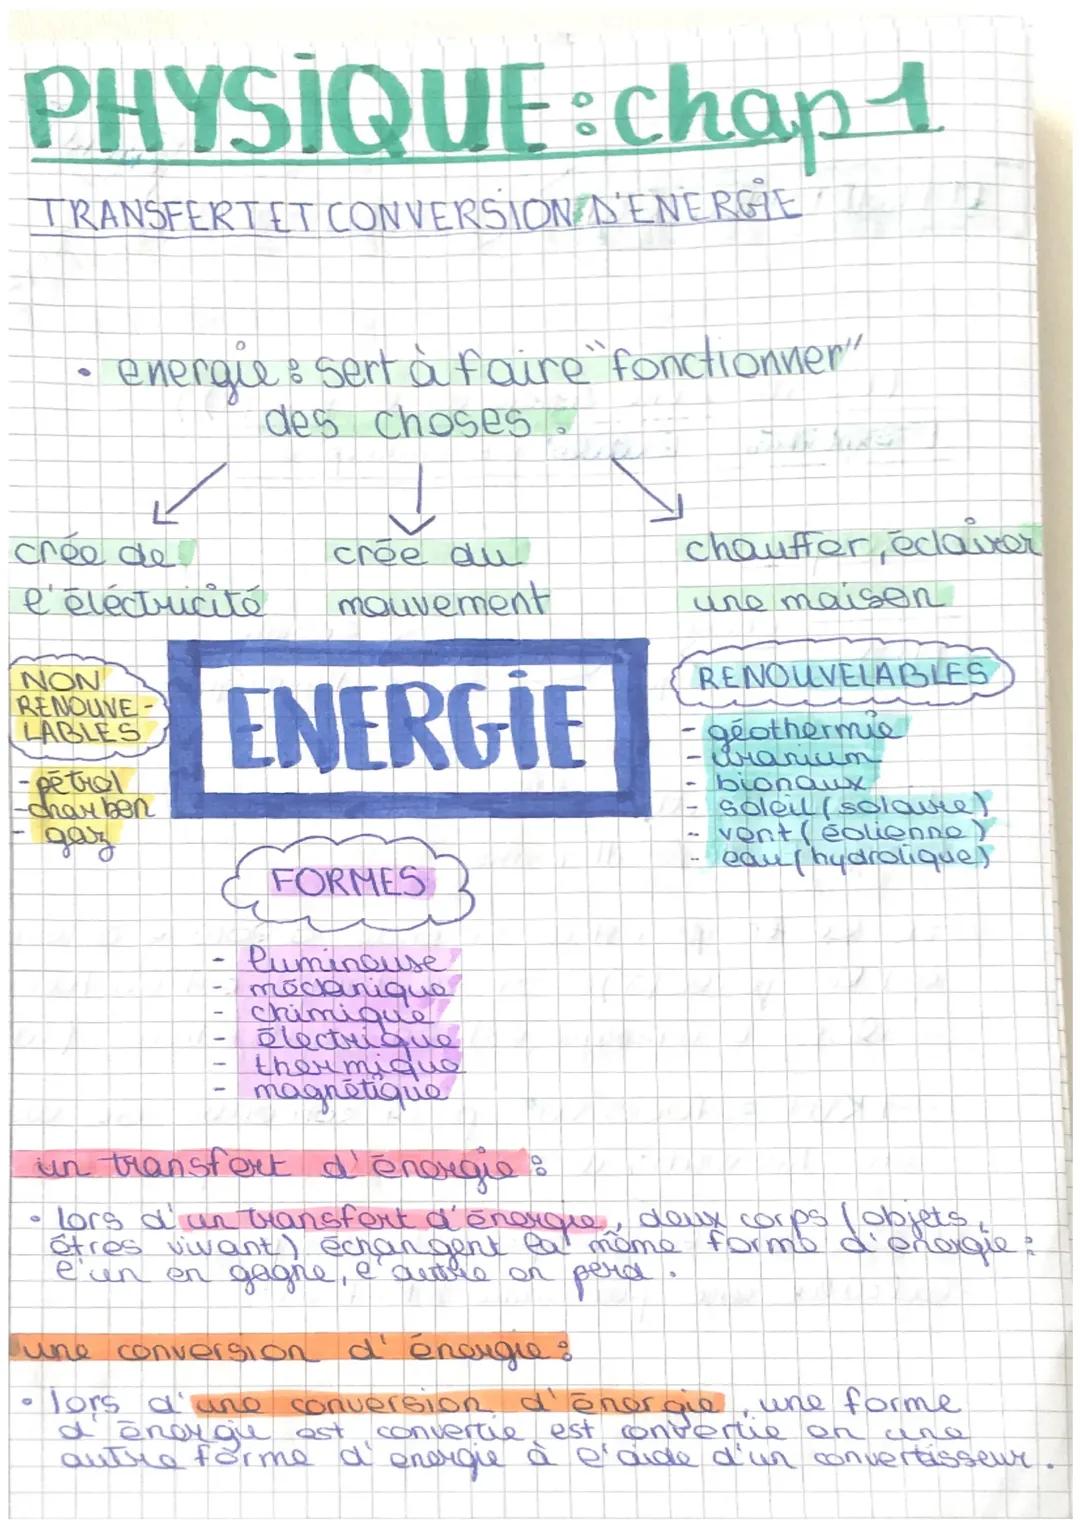 PHYSIQUE : chap 1
TRANSFERT ET CONVERSION D'ENERGIE
• energie : sert à faire "fonctionner"
des choses .
crée de
l'électricité
crée du
mouvement
chauffer, éclairer
une maison
NON
RENOUVE-
LABLES
- pétrol
- charbon
- gaz
ENERGIE
RENOUVELABLES
- géothermie
- uranium
-
- soleil (solaire)
- vent (éolienne)
- eau (hydrolique)
FORMES
- lumineuse
- mécanique
- chimique
- électrique
- thermique
- magnétique
un transfert d'énergie :
• lors d'un transfert d'énergie, deux corps (objets,
êtres vivant) échangent la même forme d'énergie :
l'un en gagne, l'autre en perd .
une conversion d'énergie :
• lors d'une conversion d'énergie, une forme
d'énergie est convertie est convertie en une
autre forme d'energie à l'aide d'un convertisseur .